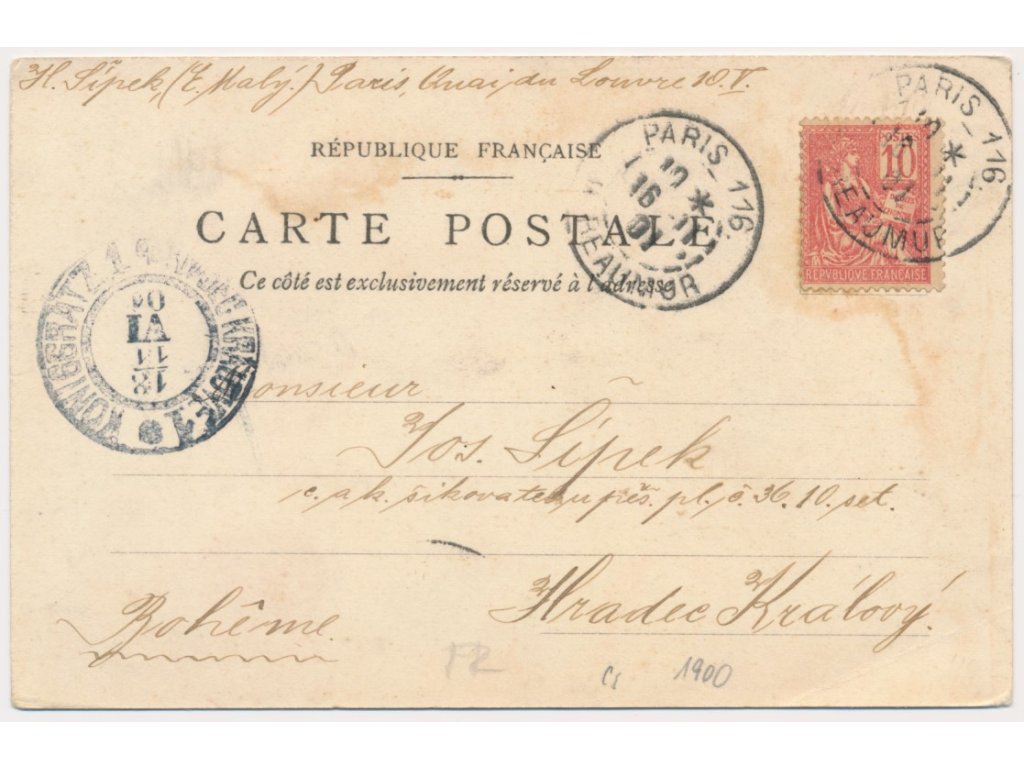 H. Šípek, (E. Malý.) Paris, Quai du Louvre 10. V.
RÉPUBLIQUE FRANÇAISE
CARTE POSTALE
Ce côté est exclusivement réservé à l'adresse
PARIS_116
10 *
16 11
01
R. REAUMUR
PARIS_116
REAUMUR
10
REPVBLIQVE FRANÇAISE
KÖNIGGRÄTZ 1
HRADEC KRÁLOVÉ 1
18
11
VI
01
Monsieur
Jos. Šípek
c. a k. šikovatel u pěš. pl. č. 36. 10. set.
Hradec Králový.
Bohême.
FR
Cs 1900